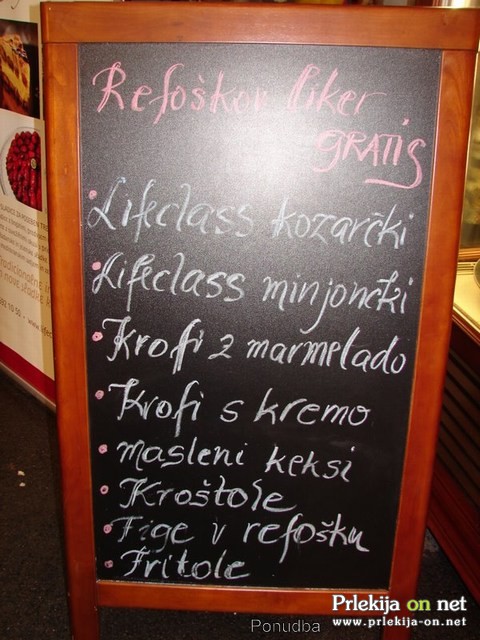 Refoškov liker
GRATIS
Lifeclass kozarčki
Lifeclass minjončki
Krofi z marmelado
Krofi s kremo
masleni keksi
Kroštole
Fige v refošku
Fritole
Ponudba
Prlekija on net
www.prlekija-on.net